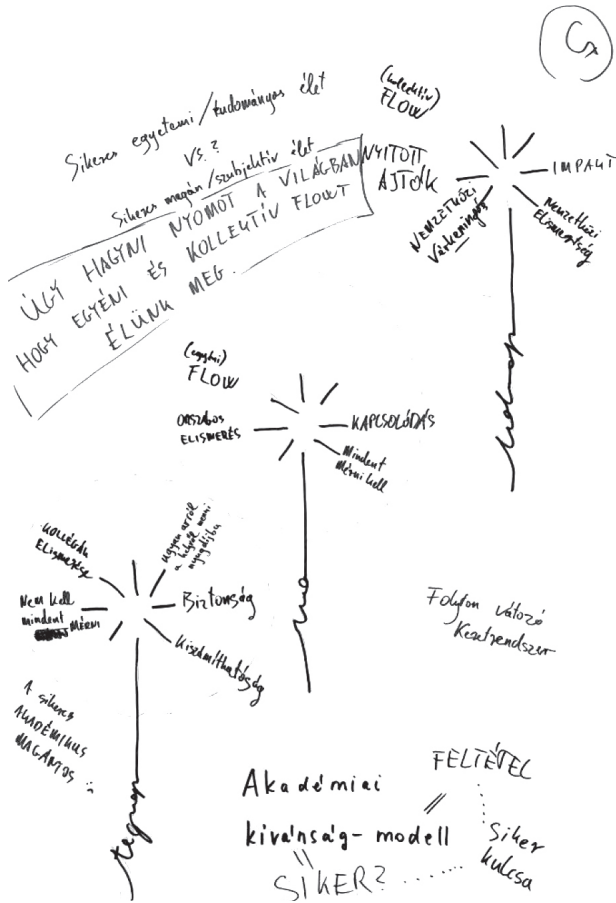 Sikeres egyetemi/tudományos élet
vs.?
Sikeres magán/szubjektív élet
ÚGY HAGYNI NYOMOT A VILÁGBAN
HOGY EGYÉNI ÉS KOLLEKTÍV FLOWT
ÉLÜNK MEG.
(kollektív)
FLOW
NYITOTT
AJTÓK
NEMZETKÖZI
IMPAKT
Nemzetközi
Elismertség
holnap
(egyéni)
FLOW
ORSZÁGOS
ELISMERÉS
KAPCSOLÓDÁS
Mindent
Mérni kell
ma
KOLLÉGÁK
ELISMERÉSE
Ugyan arról
a helyről menni
nyugdíjba
Nem kell
mindent
MÉRNI
Biztonság
Kiszámíthatóság
tegnap
A sikeres
AKADÉMIKUS
MAGÁNYOS
Folyton változó
Keretrendszer
Akadémiai
kívánság-modell
FELTÉTEL
Siker
kulcsa
SIKER?